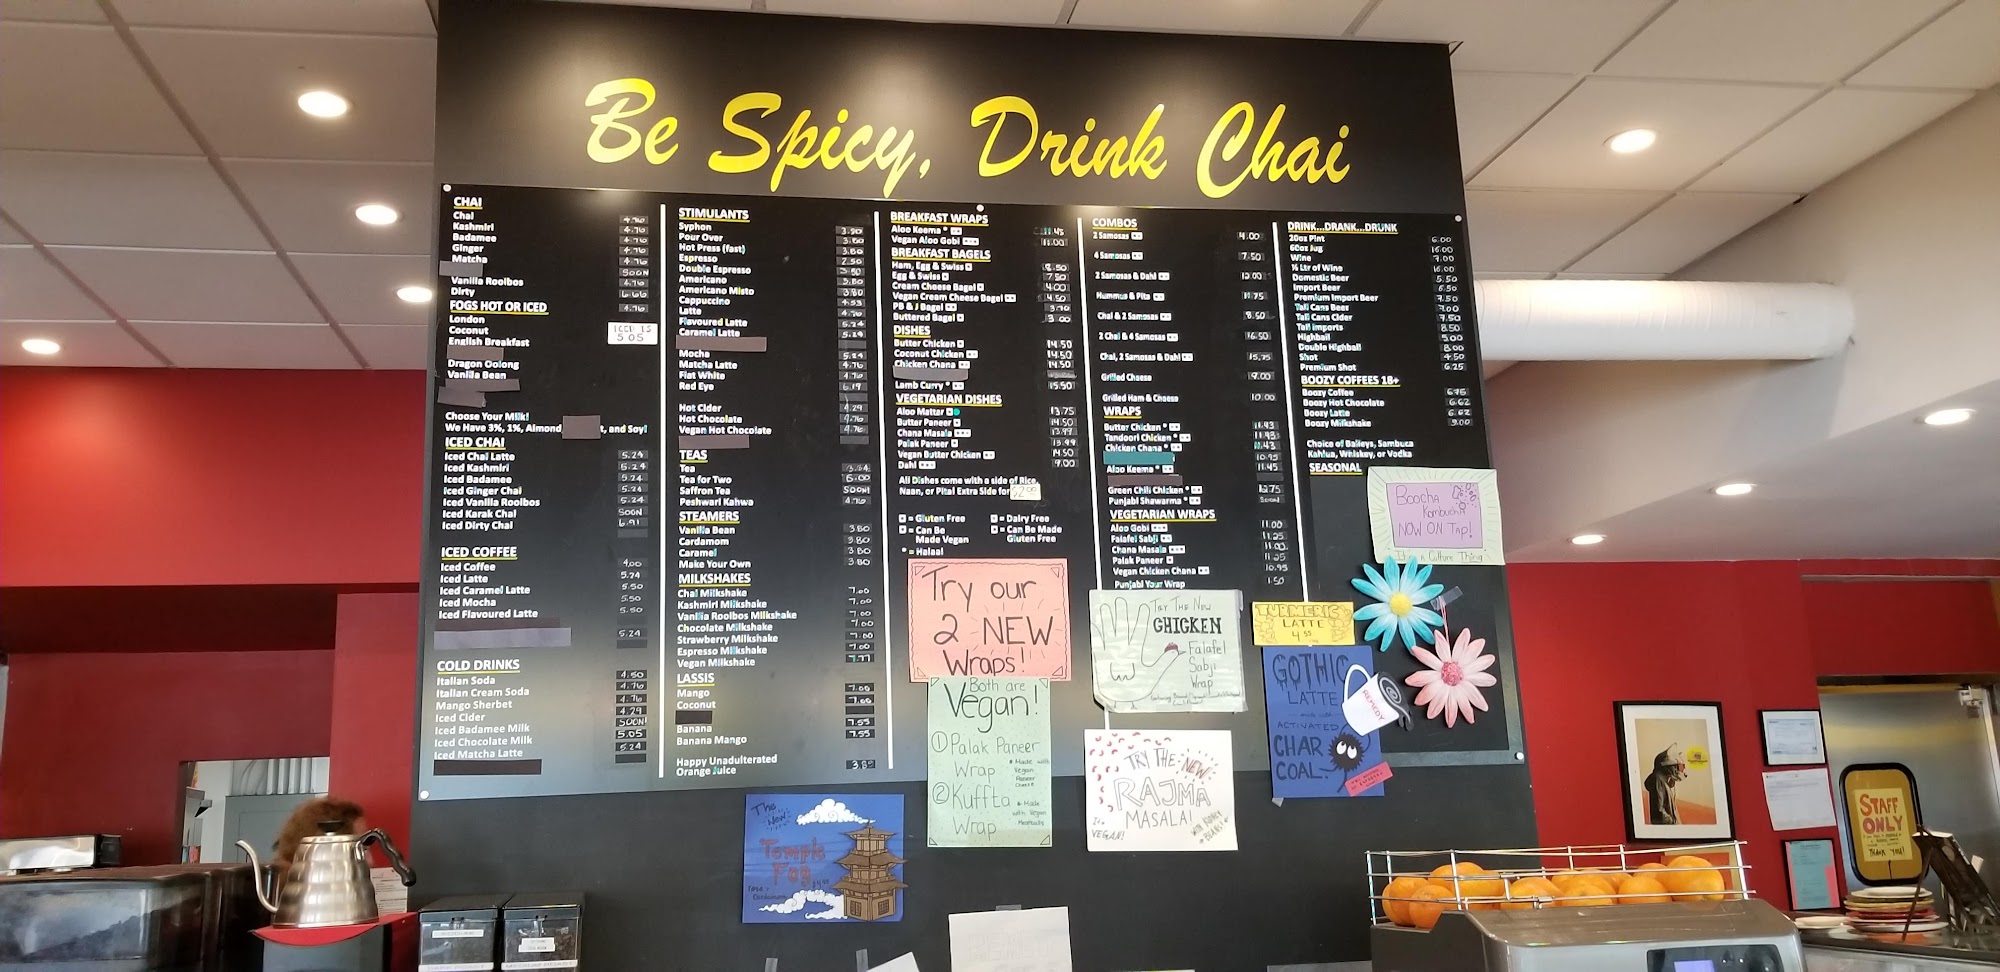 Be Spicy, Drink Chai
CHAI
Chai 4.76
Kashmiri 4.76
Badamee 4.76
Ginger 4.76
Matcha SOON
Vanilla Rooibos 4.76
Dirty 6.66
FOGS HOT OR ICED 4.76
London
Coconut
English Breakfast
ICED IS
5.05
Dragon Oolong
Vanilla Bean
Choose Your Milk!
We Have 3%, 1%, Almond, and Soy!
ICED CHAI
Iced Chai Latte 5.24
Iced Kashmiri 5.24
Iced Badamee 5.24
Iced Ginger Chai 5.24
Iced Vanilla Rooibos 5.24
Iced Karak Chai SOON
Iced Dirty Chai 6.91
ICED COFFEE
Iced Coffee 4.00
Iced Latte 5.24
Iced Caramel Latte 5.50
Iced Mocha 5.50
Iced Flavoured Latte 5.50
5.24
COLD DRINKS
Italian Soda 4.50
Italian Cream Soda 4.76
Mango Sherbet 4.76
Iced Cider 4.29
Iced Badamee Milk SOON!
Iced Chocolate Milk 5.05
Iced Matcha Latte 5.24
STIMULANTS
Syphon 3.90
Pour Over 3.80
Hot Press (fast) 3.80
Espresso 2.50
Double Espresso 3.50
Americano 3.80
Americano Misto 3.80
Cappuccino 4.53
Latte 4.76
Flavoured Latte 5.24
Caramel Latte 5.24
Mocha 5.24
Matcha Latte 4.76
Flat White 4.76
Red Eye 6.19
Hot Cider 4.29
Hot Chocolate 4.76
Vegan Hot Chocolate 4.76
TEAS
Tea 3.64
Tea for Two 6.00
Saffron Tea SOON!
Peshwari Kahwa 4.76
STEAMERS
Vanilla Bean 3.80
Cardamom 3.80
Caramel 3.80
Make Your Own 3.80
MILKSHAKES
Chai Milkshake 7.00
Kashmiri Milkshake 7.00
Vanilla Rooibos Milkshake 7.00
Chocolate Milkshake 7.00
Strawberry Milkshake 7.00
Espresso Milkshake 7.00
Vegan Milkshake 7.77
LASSIS
Mango 7.00
Coconut 7.00
Banana 7.55
Banana Mango 7.55
Happy Unadulterated
Orange Juice
BREAKFAST WRAPS
Aloo Keema * 11.45
Vegan Aloo Gobi 11.00
BREAKFAST BAGELS
Ham, Egg & Swiss 8.50
Egg & Swiss 7.50
Cream Cheese Bagel 4.00
Vegan Cream Cheese Bagel 4.50
PB & J Bagel 3.70
Buttered Bagel 3.00
DISHES
Butter Chicken 14.50
Coconut Chicken 14.50
Chicken Chana 14.50
Lamb Curry * 15.50
VEGETARIAN DISHES
Aloo Mattar 13.75
Butter Paneer 14.50
Chana Masala 13.99
Palak Paneer 13.99
Vegan Butter Chicken 14.50
Dahl 9.00
All Dishes come with a side of Rice,
Naan, or Pita! Extra Side for $2.00
= Gluten Free
= Dairy Free
= Can Be
Made Vegan
= Can Be Made
Gluten Free
* = Halaal
COMBOS
2 Samosas 4.00
4 Samosas 7.50
2 Samosas & Dahl 12.00
Hummus & Pita 11.75
Chai & 2 Samosas 8.50
2 Chai & 4 Samosas 16.50
Chai, 2 Samosas & Dahl 15.75
Grilled Cheese 9.00
Grilled Ham & Cheese 10.00
WRAPS
Butter Chicken * 11.43
Tandoori Chicken * 11.43
Chicken Chana * 11.43
10.95
Aloo Keema * 11.45
Green Chili Chicken * 12.75
Punjabi Shawarma * SOON
VEGETARIAN WRAPS
Aloo Gobi 11.00
Falafel Sabji 11.25
Chana Masala 11.00
Palak Paneer 11.25
Vegan Chicken Chana 10.95
Punjabi Your Wrap 1.50
DRINK...DRANK...DRUNK
20oz Pint 6.00
60oz Jug 16.00
Wine 7.00
½ Ltr of Wine 16.00
Domestic Beer 5.50
Import Beer 6.50
Premium Import Beer 7.50
Tall Cans Beer 7.00
Tall Cans Cider 7.50
Tall Imports 8.50
Highball 5.00
Double Highball 8.00
Shot 4.50
Premium Shot 6.25
BOOZY COFFEES 18+
Boozy Coffee 6.75
Boozy Hot Chocolate 6.62
Boozy Latte 6.62
Boozy Milkshake 9.00
Choice of Baileys, Sambuca
Kahlua, Whiskey, or Vodka
SEASONAL
Boocha
Kombucha
NOW ON TAP!
It's a Culture Thing
Try our
2 NEW
Wraps!
Both are
Vegan!
① Palak Paneer
Wrap
* Made with
Vegan
Paneer
Cheese
② Kuffta
Wrap
* Made
with Vegan
Meatballs
TRY THE NEW
CHICKEN
Falafel
Sabji
Wrap
TRY THE NEW
RAJMA
MASALA!
It's
VEGAN!
WITH KIDNEY
BEANS!
TURMERIC
LATTE
4.55
GOTHIC
LATTE
made with
ACTIVATED
CHAR
COAL.
REMEDY
The
New
Temple
Fog
STAFF
ONLY
THANK YOU!